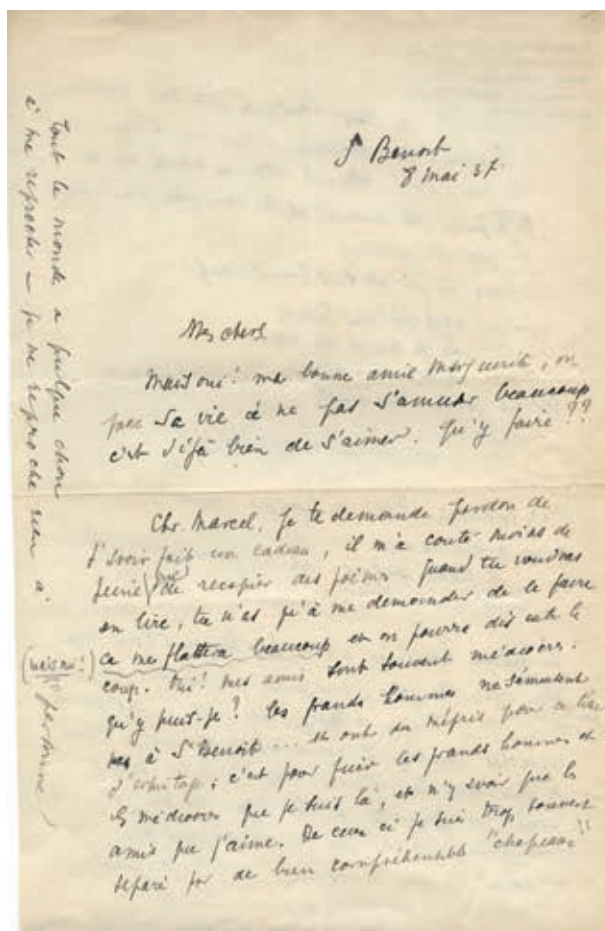 St Benoit
8 mai 37
Mes chers
Mais oui! ma bonne amie Marguerite, on
passe sa vie à ne pas s'amuser beaucoup
c'est déjà bien de s'aimer. Qu'y faire??
Cher Marcel, je te demande pardon de
t'avoir fait un cadeau, il m'a couté moins de
que de recopier des poèmes. Quand tu voudras
en lire, tu n'as qu'à me demander de le faire
ça me flattera beaucoup et on pourra
coup. Oui! mes amis sont souvent médiocres.
qu'y puis-je? les grands hommes ne
pas à St Benoit... et ont du mépris pour ce
d'ermitage; c'est pour fuir les grands hommes et
les médiocres que je suis là, et n'y avoir que les
amis que j'aime. De ceux ci je suis trop souvent
séparé par de bien compréhensible "chapeau"!
Tout le monde a quelque chose
à me reprocher – je ne reproche rien à
(mais non!) personne